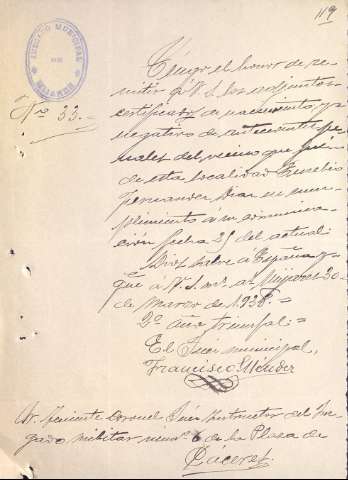 119
JUZGADO MUNICIPAL
Nº 33.-
Tengo el honor de re-
mitir á V. S. los adjuntos
certificados de nacimiento, y
negativo de antecedentes pe-
nales del vecino que fué
de esta localidad
Fernandez Diaz en cum-
plimiento a su comunica-
ción fecha 25 del actual.
Dios salve á España y
que á V. S. m. a. 30-
de Marzo de 1938.=
2º año triunfal:=
El Juez municipal,
Francisco Méndez
Sr. Teniente Coronel Juez Instructor del Juz-
gado militar núm. 6 de la Plaza de
Caceres